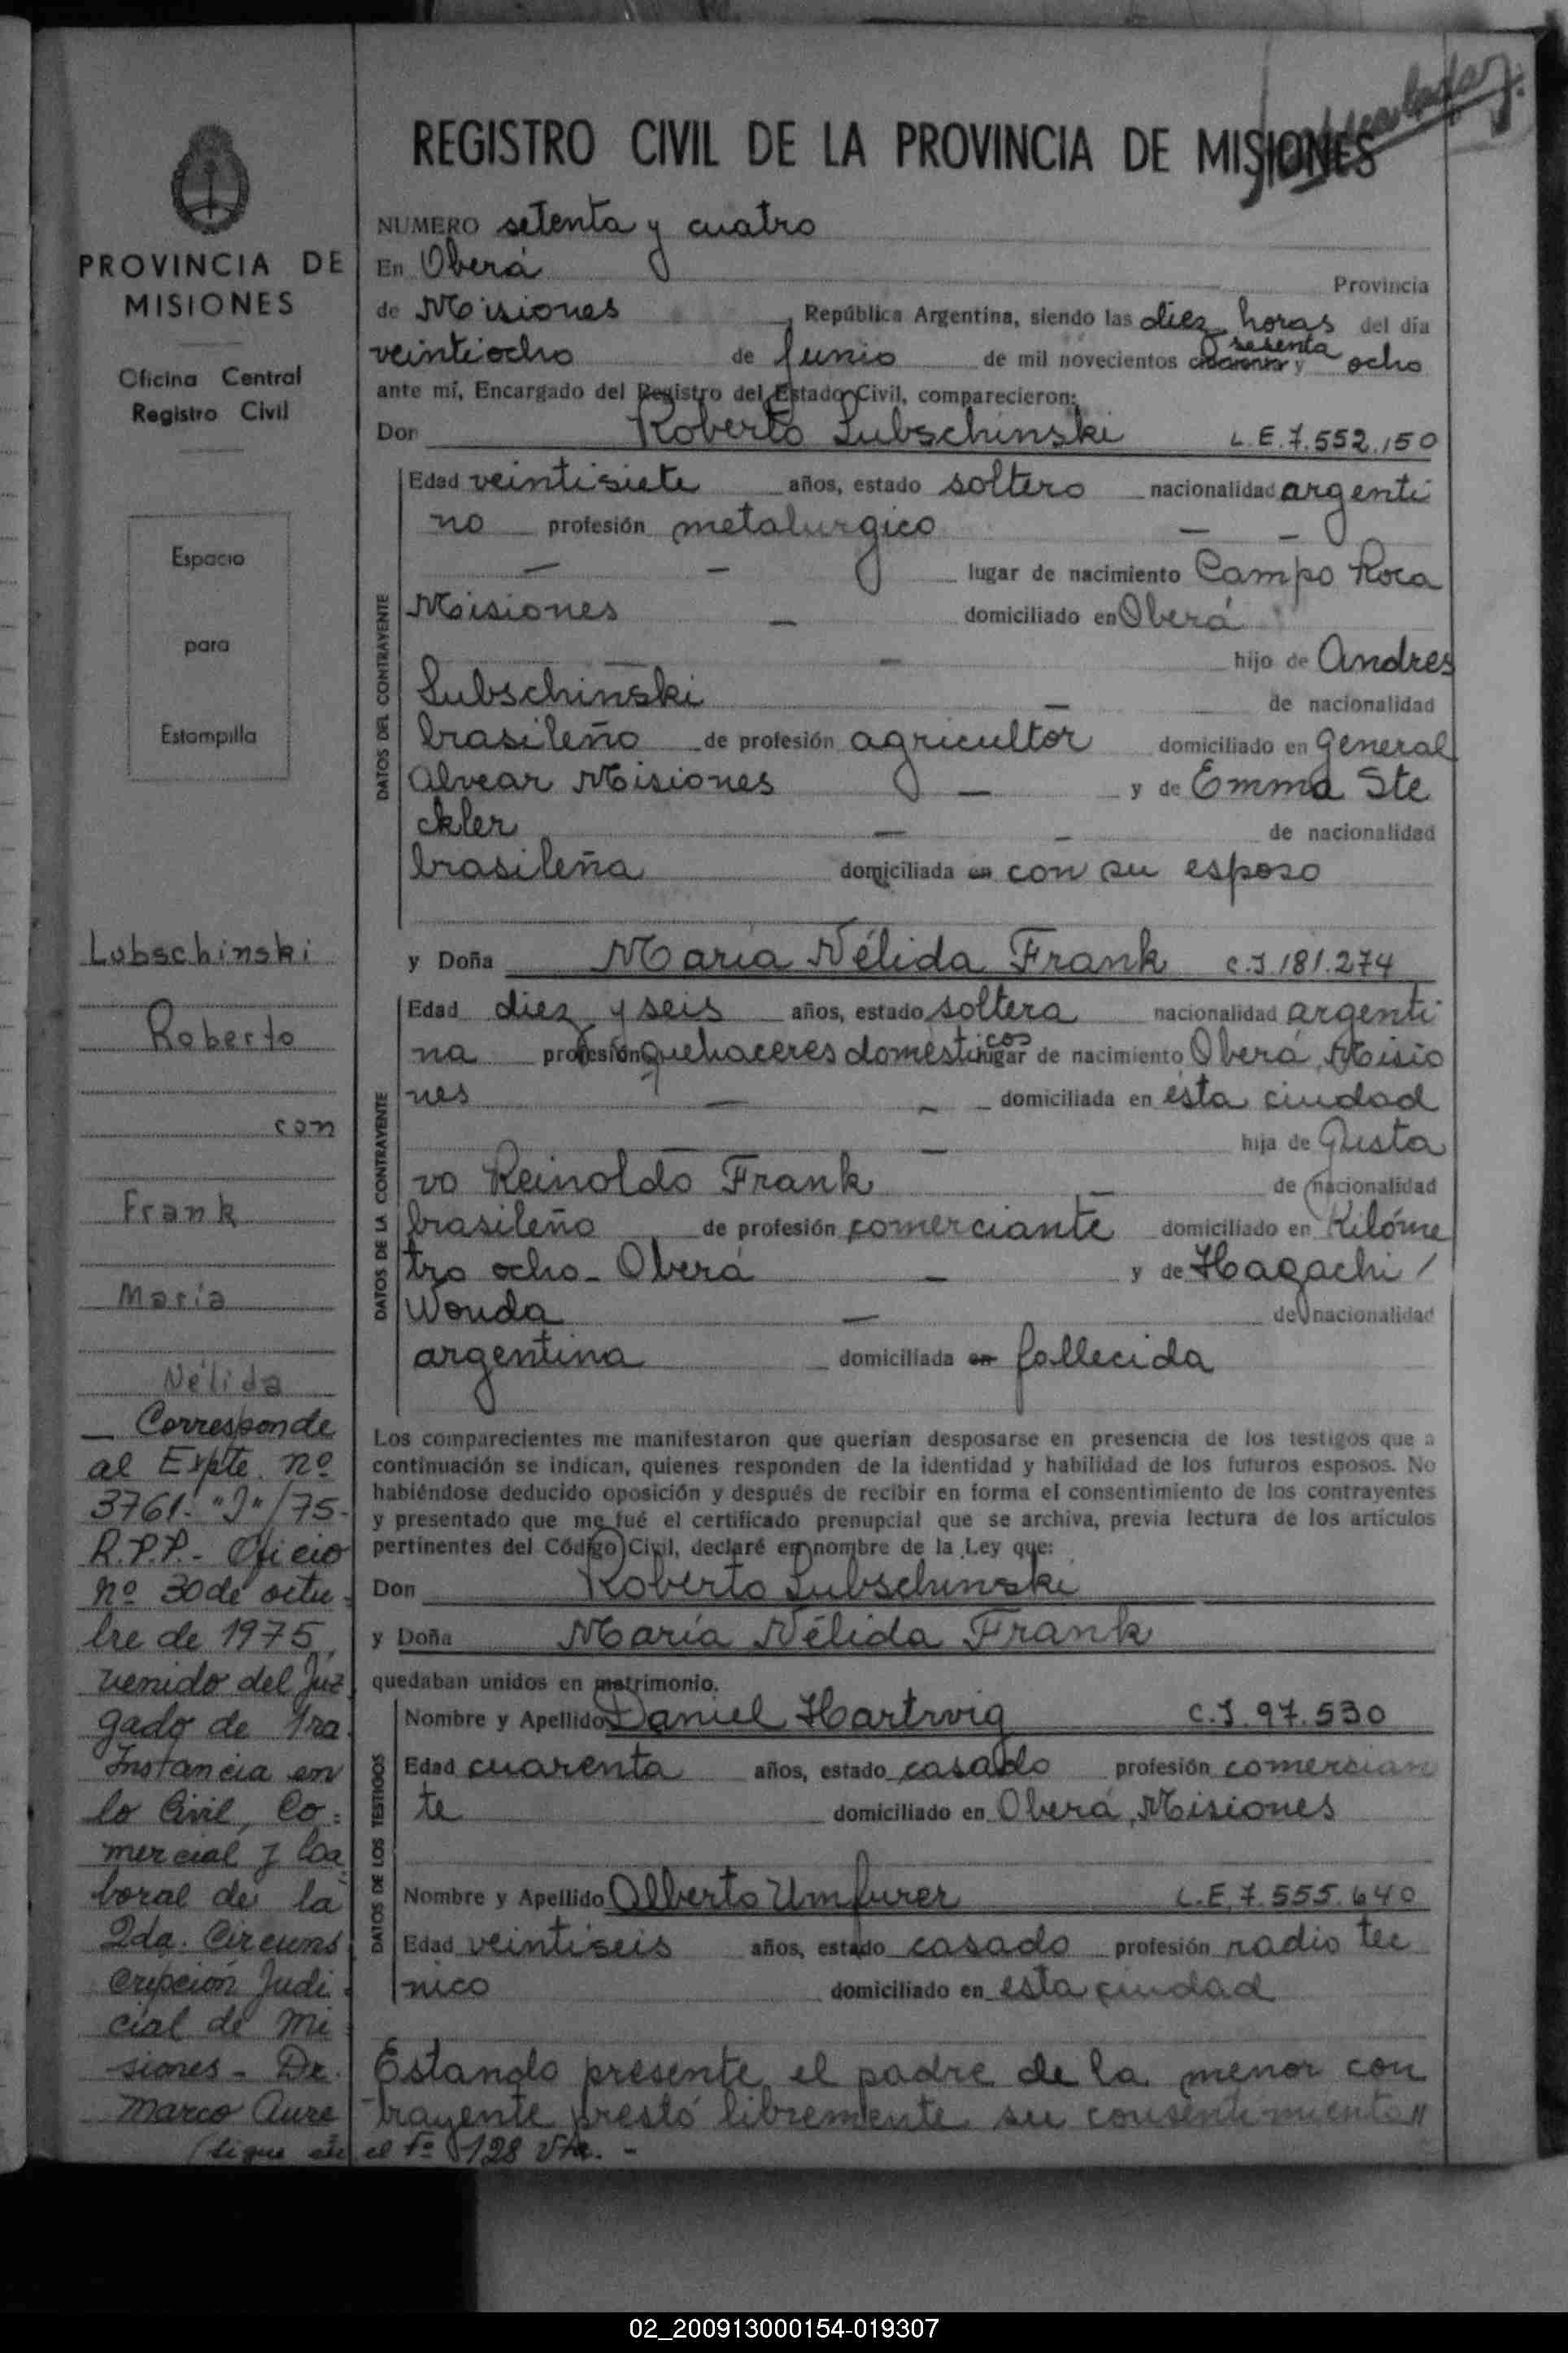 REGISTRO CIVIL DE LA PROVINCIA DE MISIONES
PROVINCIA DE
MISIONES
Oficina Central
Registro Civil
Espacio
para
Estampilla
Lubschinski
Roberto
con
Frank
Maria
Nélida
Corresponde
al Expte. nº
3761-"J"/75-
R.P.P.- Oficio
nº 30 de octu
bre de 1975,
venido del Juz
gado de 1ra.
Instancia en
lo Civil, Co=
mercial y La
boral de la
2da. Circuns
cripción Judi
cial de Mi
siones - Dr.
Marco Aure
(sigue en el fº 128 vta. -
NUMERO setenta y cuatro
En Oberá Provincia
de Misiones, República Argentina, siendo las diez horas del día
veintiocho de Junio de mil novecientos sesenta y ocho
ante mí, Encargado del Registro del Estado Civil, comparecieron:
Don Roberto Lubschinski L.E.7.552.150
DATOS DEL CONTRAYENTE
Edad veintisiete años, estado soltero nacionalidad argenti
no profesión metalurgico - -
- - lugar de nacimiento Campo Roca
Misiones - domiciliado en Oberá
- - hijo de Andres
Lubschinski - de nacionalidad
brasileño de profesión agricultor domiciliado en General
Alvear Misiones - y de Emma Ste
ckler - - de nacionalidad
brasileña domiciliada en con su esposo
y Doña María Nélida Frank C.I.181.274
DATOS DE LA CONTRAYENTE
Edad diez y seis años, estado soltera nacionalidad argenti
na profesión quehaceres domesticos lugar de nacimiento Oberá, Misio
nes - - domiciliada en esta ciudad
- hija de Gusta
vo Reinoldo Frank - de nacionalidad
brasileño de profesión comerciante domiciliado en Kilóme
tro ocho - Oberá - y de Hagachi /
Wouda - de nacionalidad
argentina domiciliada en fallecida
Los comparecientes me manifestaron que querían desposarse en presencia de los testigos que a
continuación se indican, quienes responden de la identidad y habilidad de los futuros esposos. No
habiéndose deducido oposición y después de recibir en forma el consentimiento de los contrayentes
y presentado que me fué el certificado prenupcial que se archiva, previa lectura de los artículos
pertinentes del Código Civil, declaré en nombre de la Ley que:
Don Roberto Lubschinski
y Doña María Nélida Frank
quedaban unidos en matrimonio.
DATOS DE LOS TESTIGOS
Nombre y Apellido Daniel Hartwig C.I.97.530
Edad cuarenta años, estado casado profesión comercian
te domiciliado en Oberá, Misiones
Nombre y Apellido Alberto Umfurer L.E.7.555.640
Edad veintiseis años, estado casado profesión radio tec
nico domiciliado en esta ciudad
Estando presente el padre de la menor con
trayente prestó libremente su consentimiento//
02_200913000154-019307